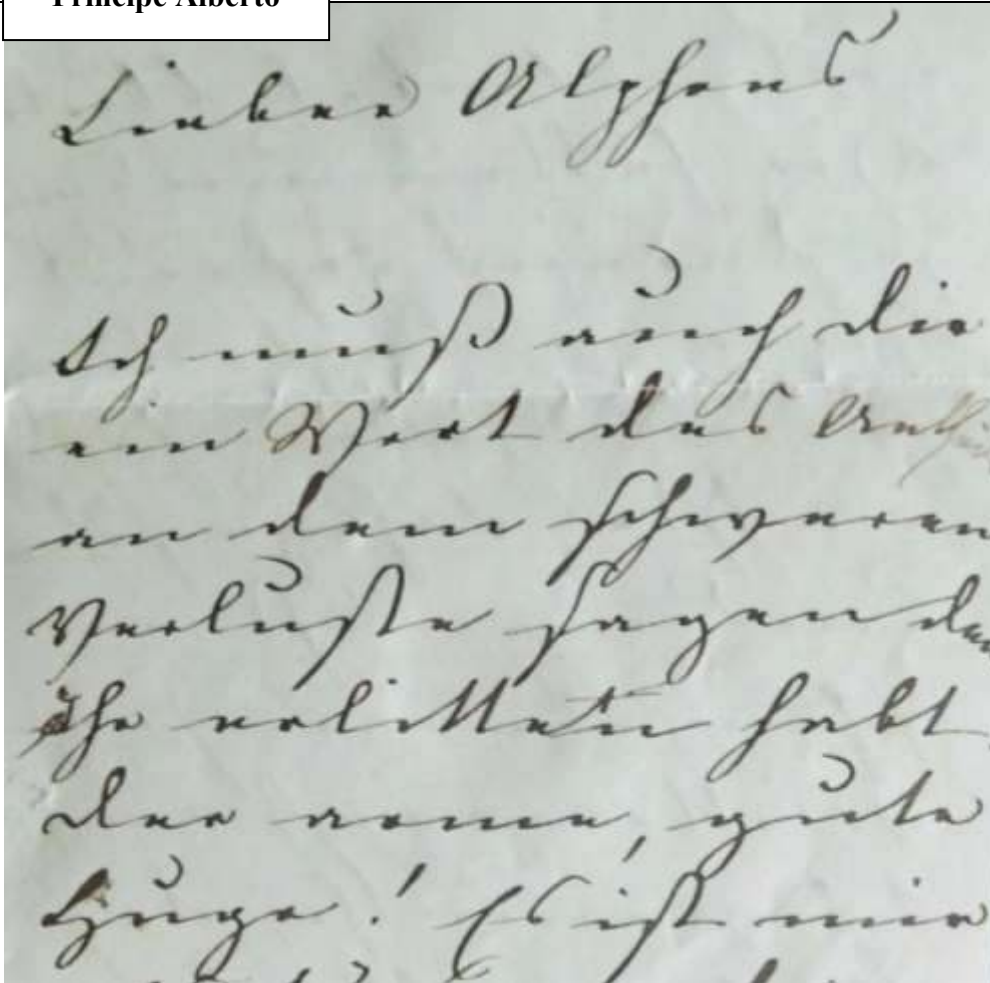 Principe Alberto
Lieber Alphons
Ich muß auch dir
ein Wort des
an dem schweren
Verluste sagen den
Ihr erlitten habt
der arme, gute
Hugo! Es ist mir